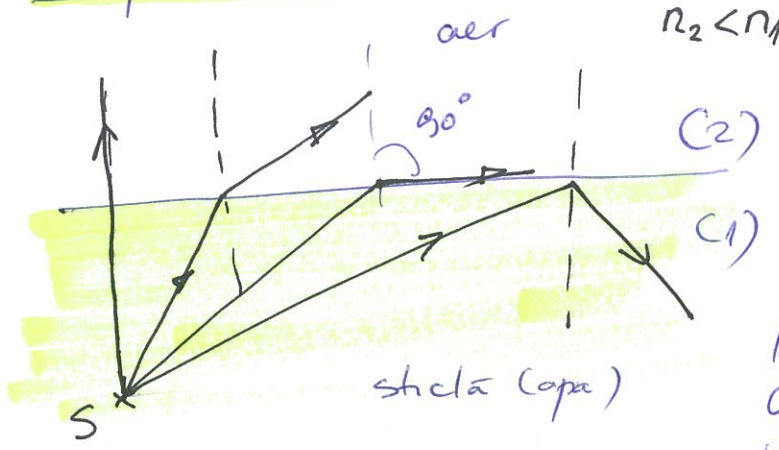 aer
n₂ < n₁
90°
(2)
(1)
sticlă (apa)
S